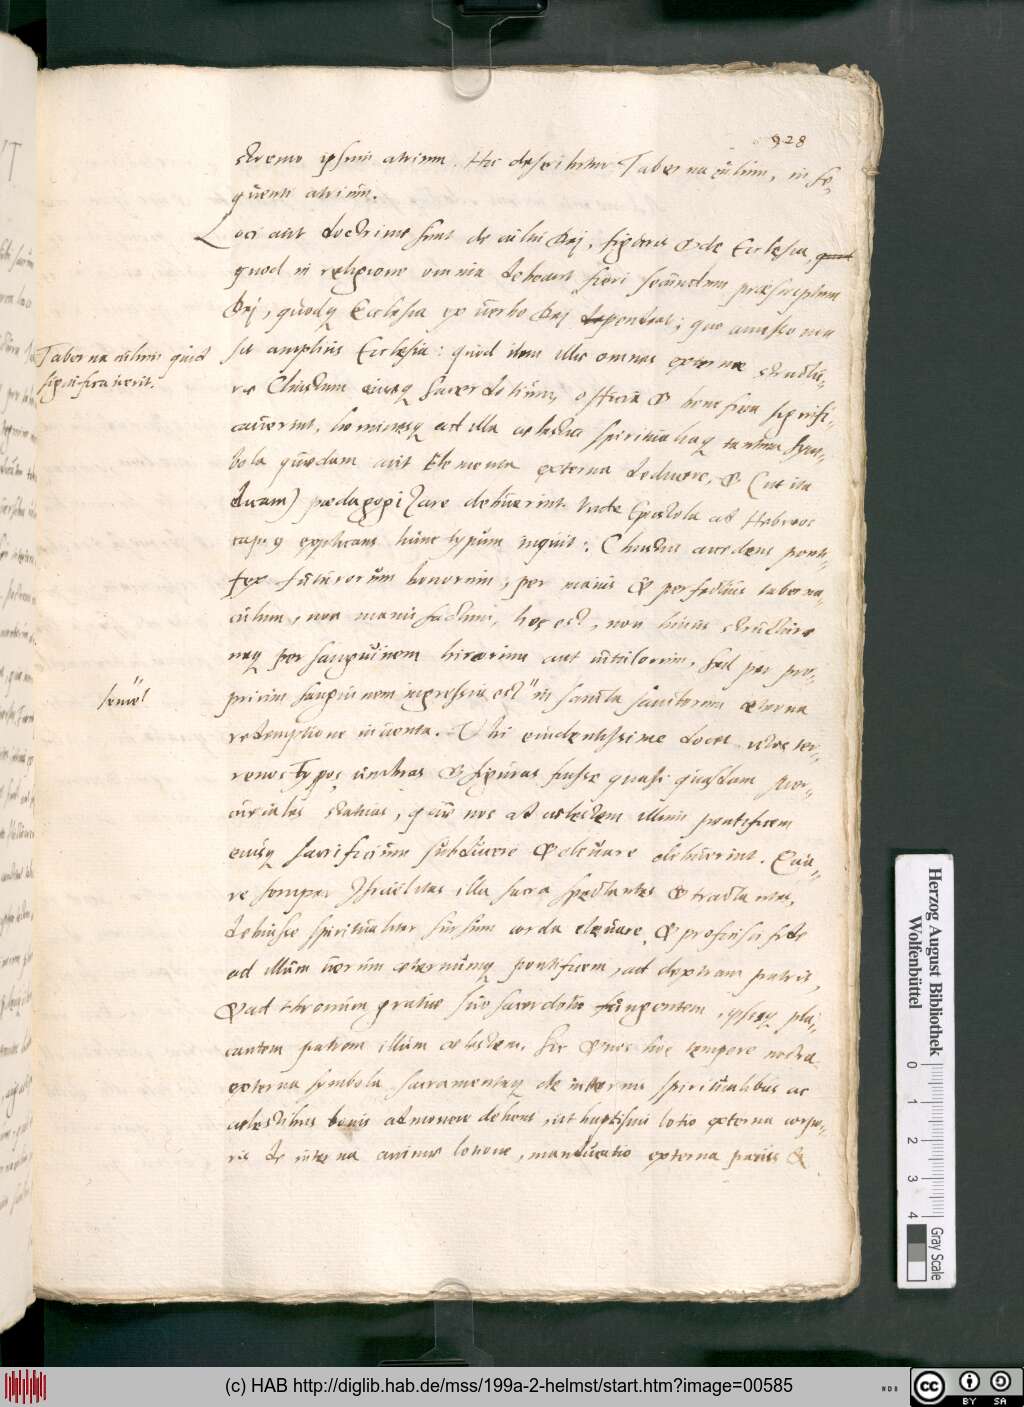 928
stremo ipsum atrium. Hic describitur Tabernaculum, in se-
quenti atrium.
Loci aut doctrinae sunt de cultu Dei, figuris & de Ecclesia,
quod in religione omnia debeant fieri secundum praescriptum
Dei, quodq Ecclesia ex verbo Dei dependeat; quo amisso non
sit amplius Ecclesia: quod item illae omnes externae structu-
rae Christum eiusq sacerdotium, officia & beneficia signifi-
caverint, hominesq ad illa coelestia spiritualiaq tantum sym-
bola quaedam aut Elementa externa deducere, & (ut ita
dicam) paedagogizare debuerint. Unde Epistola ad Hebraeos
cap. 9 explicans hunc typum inquit: Christus accedens ponti-
fex futurorum bonorum, per maius & perfectius taberna-
culum, non manu factum, hoc est, non huius structurae
neq per sanguinem hircorum aut vitulorum, sed per pro-
prium sanguinem ingressus est " in sancta sanctorum aeterna
redemptione inventa. Ubi evidentissime docet istos ter-
renos typos umbras & figuras fuisse quasi quasdam
statuas, quae nos ad coelestem illum pontificem
eiusq sacrificium subducere & elevare debuerint.
re semper Israelitas illa sacra spectantes & tractantes,
debuisse spiritualiter sursum corda elevare, & proficisci fide
ad illum verum aeternumq pontificem, ad dextram patris,
& ad thronum gratiae suo sacerdotio fungentem, ipsisq pla-
cantem patrem illum coelestem. Sic & nos hoc tempore nostra
externa symbola sacramentaq de internis spiritualibus ac
coelestibus bonis admonere debent, ut baptismi lotio externa corpo-
ris de interna animae lotione, manducatio externa panis &
Tabernaculum quid
significaverit.
semel
Herzog August Bibliothek
Wolfenbüttel
0 1 2 3 4
Gray Scale
(c) HAB http://diglib.hab.de/mss/199a-2-helmst/start.htm?image=00585
cc BY SA